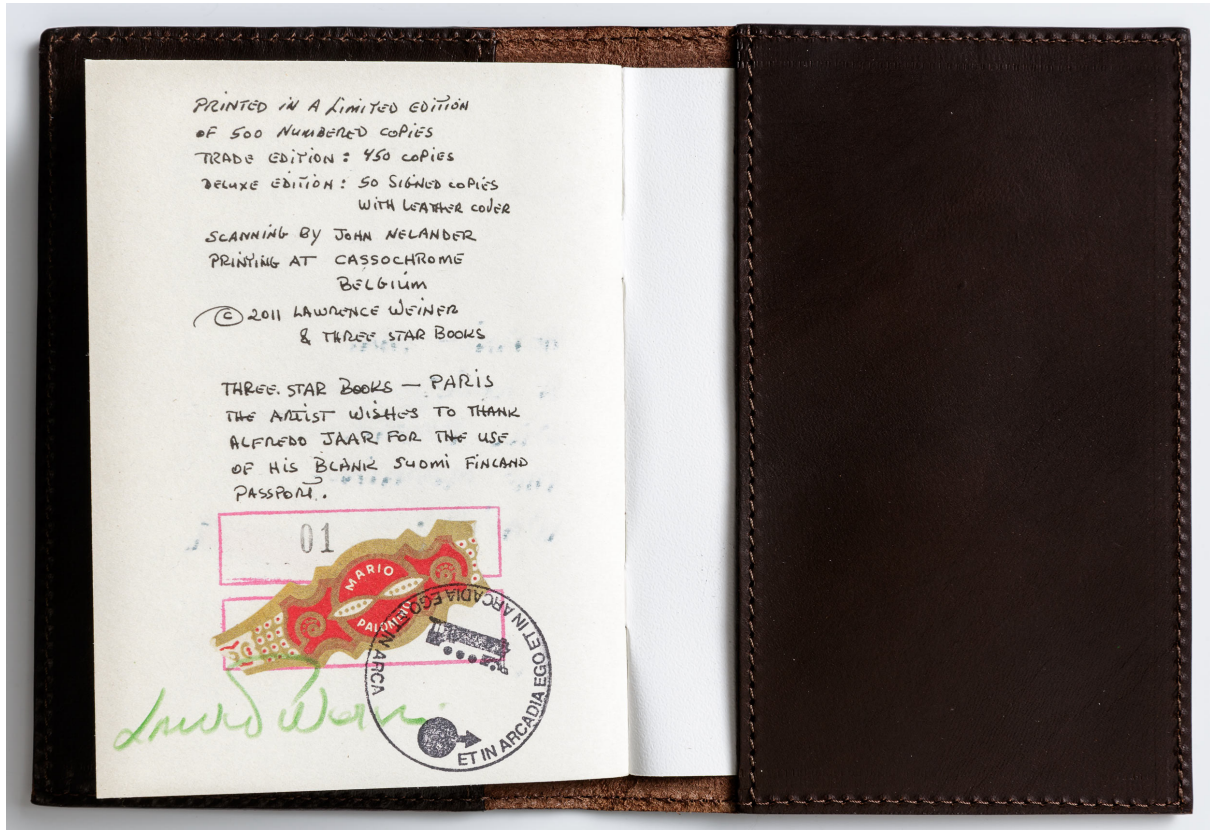 PRINTED IN A LIMITED EDITION
OF 500 NUMBERED COPIES
TRADE EDITION: 450 COPIES
DELUXE EDITION: 50 SIGNED COPIES
WITH LEATHER COVER
SCANNING BY JOHN NELANDER
PRINTING AT CASSOCHROME
BELGIUM
© 2011 LAWRENCE WEINER
& THREE STAR BOOKS
THREE STAR BOOKS — PARIS
THE ARTIST WISHES TO THANK
ALFREDO JAAR FOR THE USE
OF HIS BLANK SUOMI FINLAND
PASSPORT.
01
MARIO
PALOMINO
ET IN ARCADIA EGO ET IN ARCADIA EGO ET IN ARCA